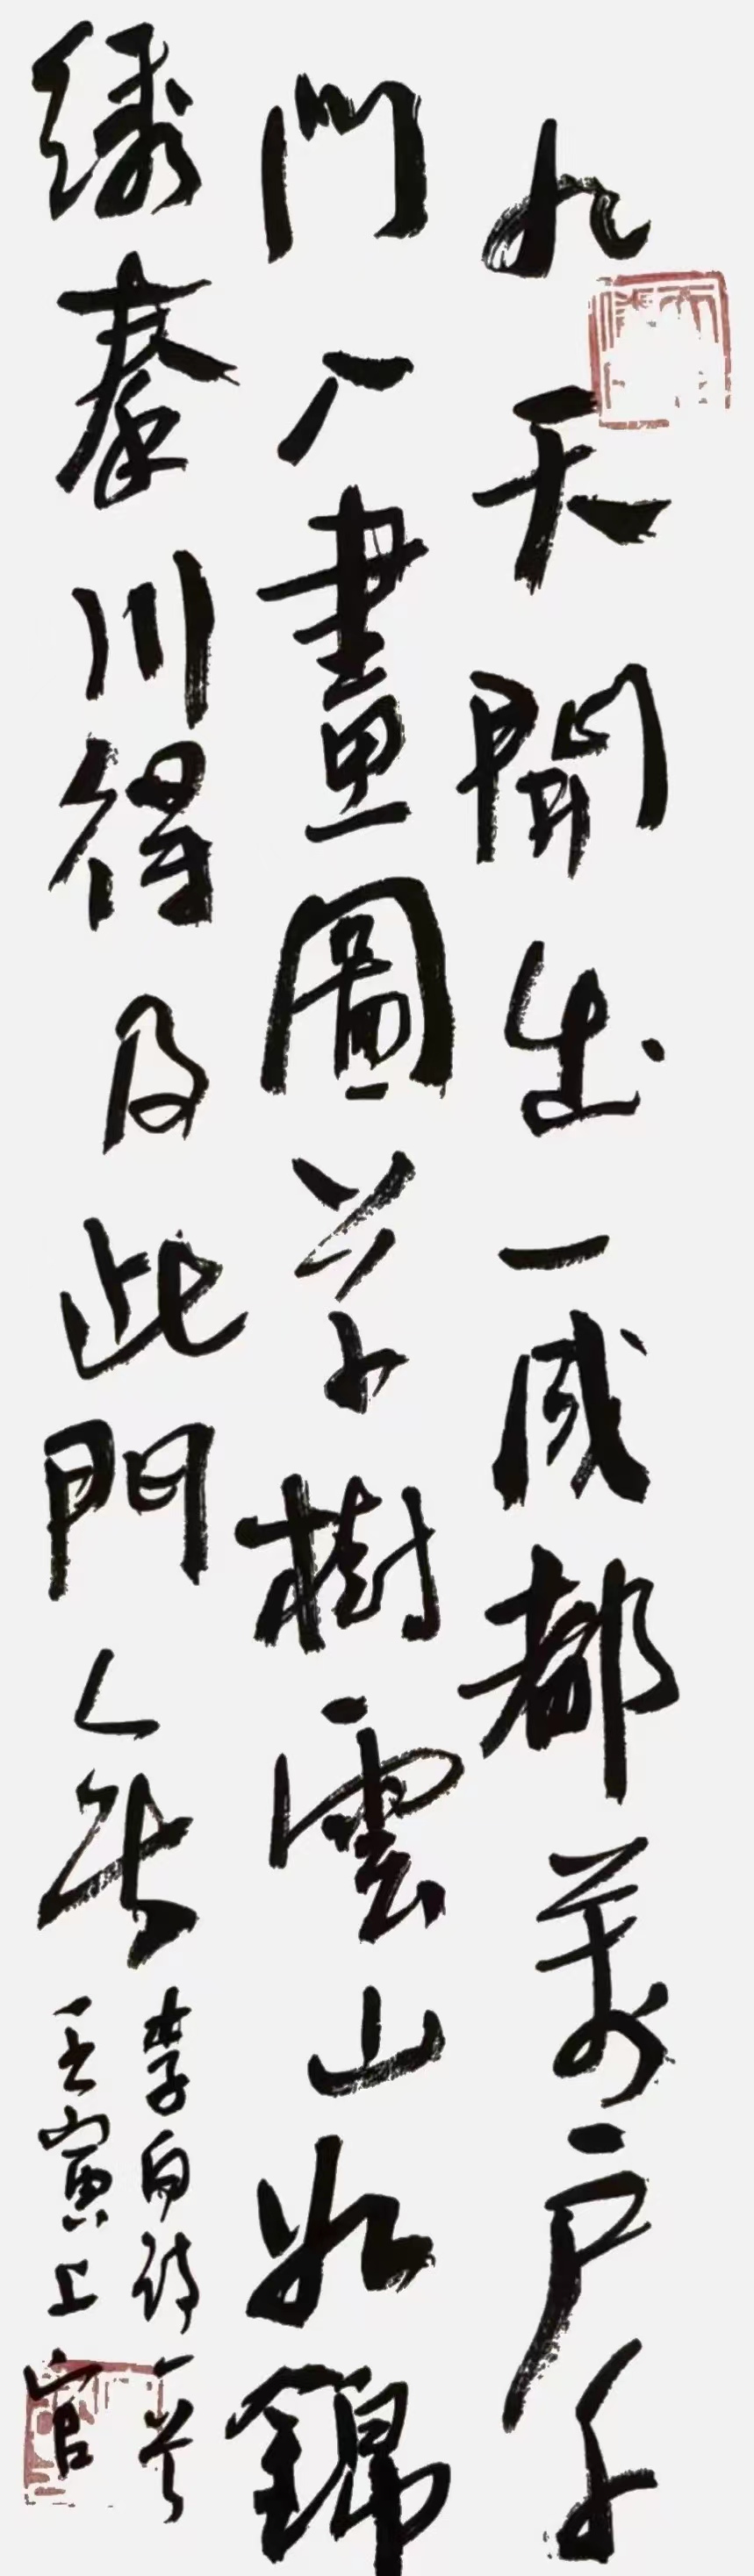 九天開出一成都萬户千
門入畫圖草樹雲山如錦
綉秦川得及此間無
李白詩一首
壬寅上官